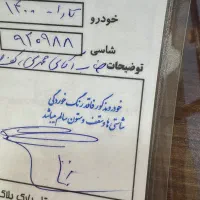 تارا - ۱۴۰۰
خودرو
شاسی ۹۲۰۹۸۸
توضیحات جناب آقای
خودرو مذکور فاقد رنگ خوردگی
شاسی ها و سقف و ستون سالم میباشد